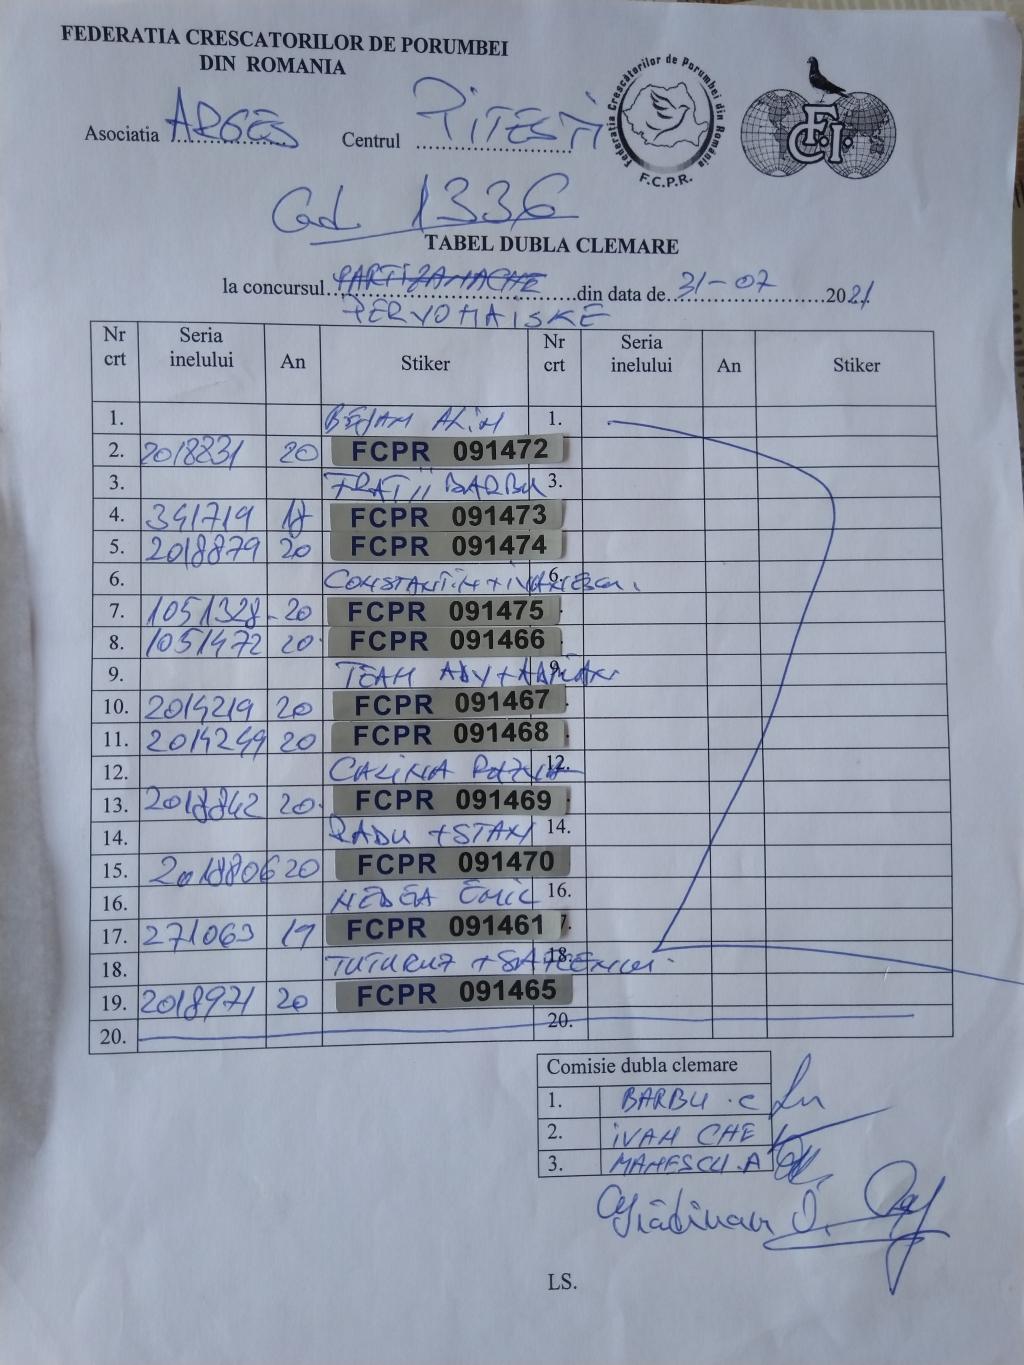 FEDERATIA CRESCATORILOR DE PORUMBEI
DIN ROMANIA
Asociatia ARGES Centrul PITESTI
Federatia Crescătorilor de Porumbei din România
F.C.P.R.
F.C.I.
Cod 1336
TABEL DUBLA CLEMARE
la concursul PARTIZANSCHE din data de 31-07 2021
PERVOMAISKE
Nr crt Seria inelului An Stiker Nr crt Seria inelului An Stiker
1. BEJAN ALIN 1.
2. 2018831 20 FCPR 091472
3. FRATII BARBU 3.
4. 341719 18 FCPR 091473
5. 2018879 20 FCPR 091474
6. CONSTANTIN + IVANESCU 6.
7. 1051328 - 20 FCPR 091475
8. 1051472 20 FCPR 091466
9. TEAM ADY + 9.
10. 2014219 20 FCPR 091467
11. 2014249 20 FCPR 091468
12. CALINA 12.
13. 2018842 20 FCPR 091469
14. RADU + STAN 14.
15. 2018806 20 FCPR 091470
16. NEDEA EMIL 16.
17. 271063 19 FCPR 091461 7.
18. 18.
19. 2018971 20 FCPR 091465
20. 20.
Comisie dubla clemare
1. BARBU . C
2. IVAN CHE
3. MANESCU . A
Grădinaru D.
LS.